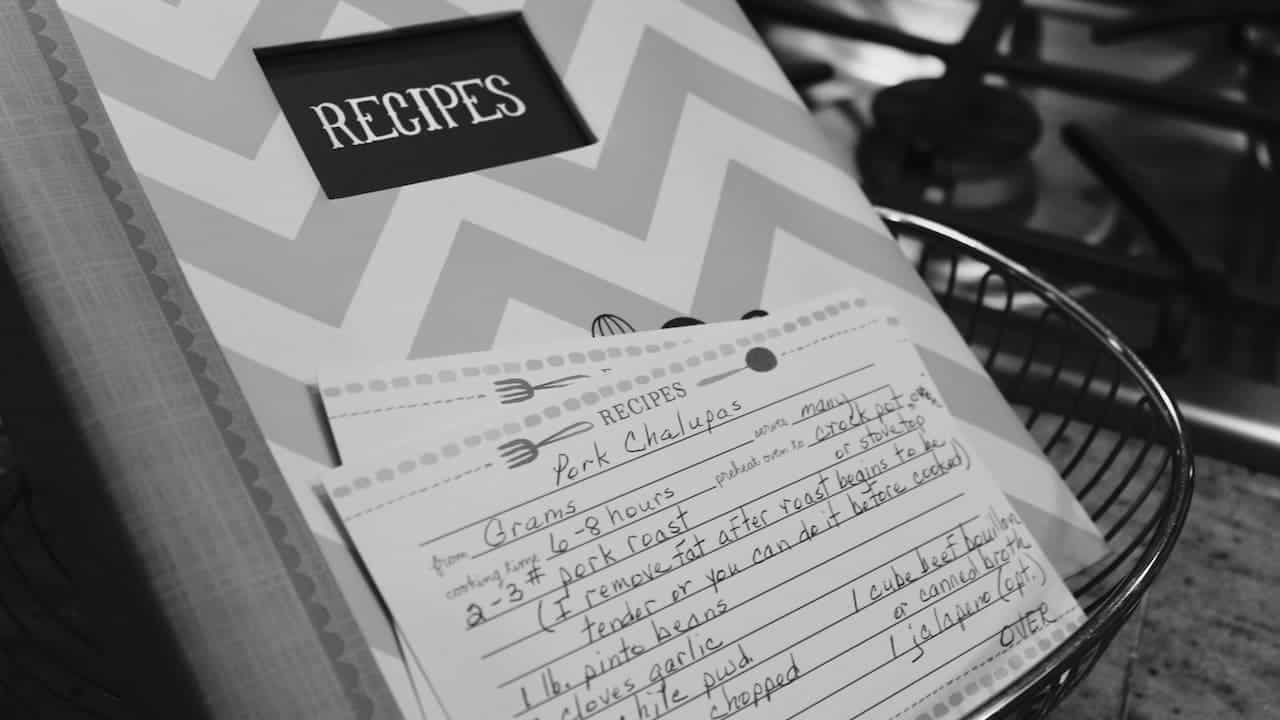 RECIPES
RECIPES
Pork Chalupas
from Grams serves many
cooking time 6-8 hours preheat oven to crock pot
or stovetop
2-3 # pork roast
(I remove fat after roast begins to be
tender or you can do it before cooked)
1 lb. pinto beans 1 cube beef bouillon
cloves garlic or canned broth
chile pwd. 1 jalapeno (opt.)
chopped OVER